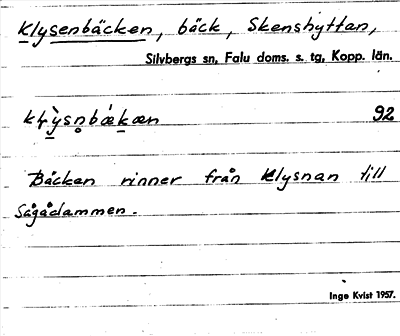 Klysenbäcken, bäck, Skenshyttan,
Silvbergs sn, Falu doms. s. tg, Kopp. län.
92
Bäcken rinner från Klysnan till
Sågådammen.
Inge Kvist 1957.